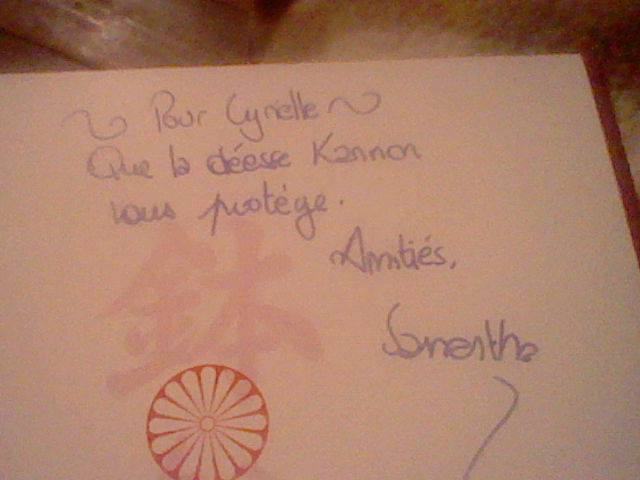 ~ Pour Cyrielle ~
Que la déesse Kannon
vous protège.
Amitiés,
Samantha
鉢